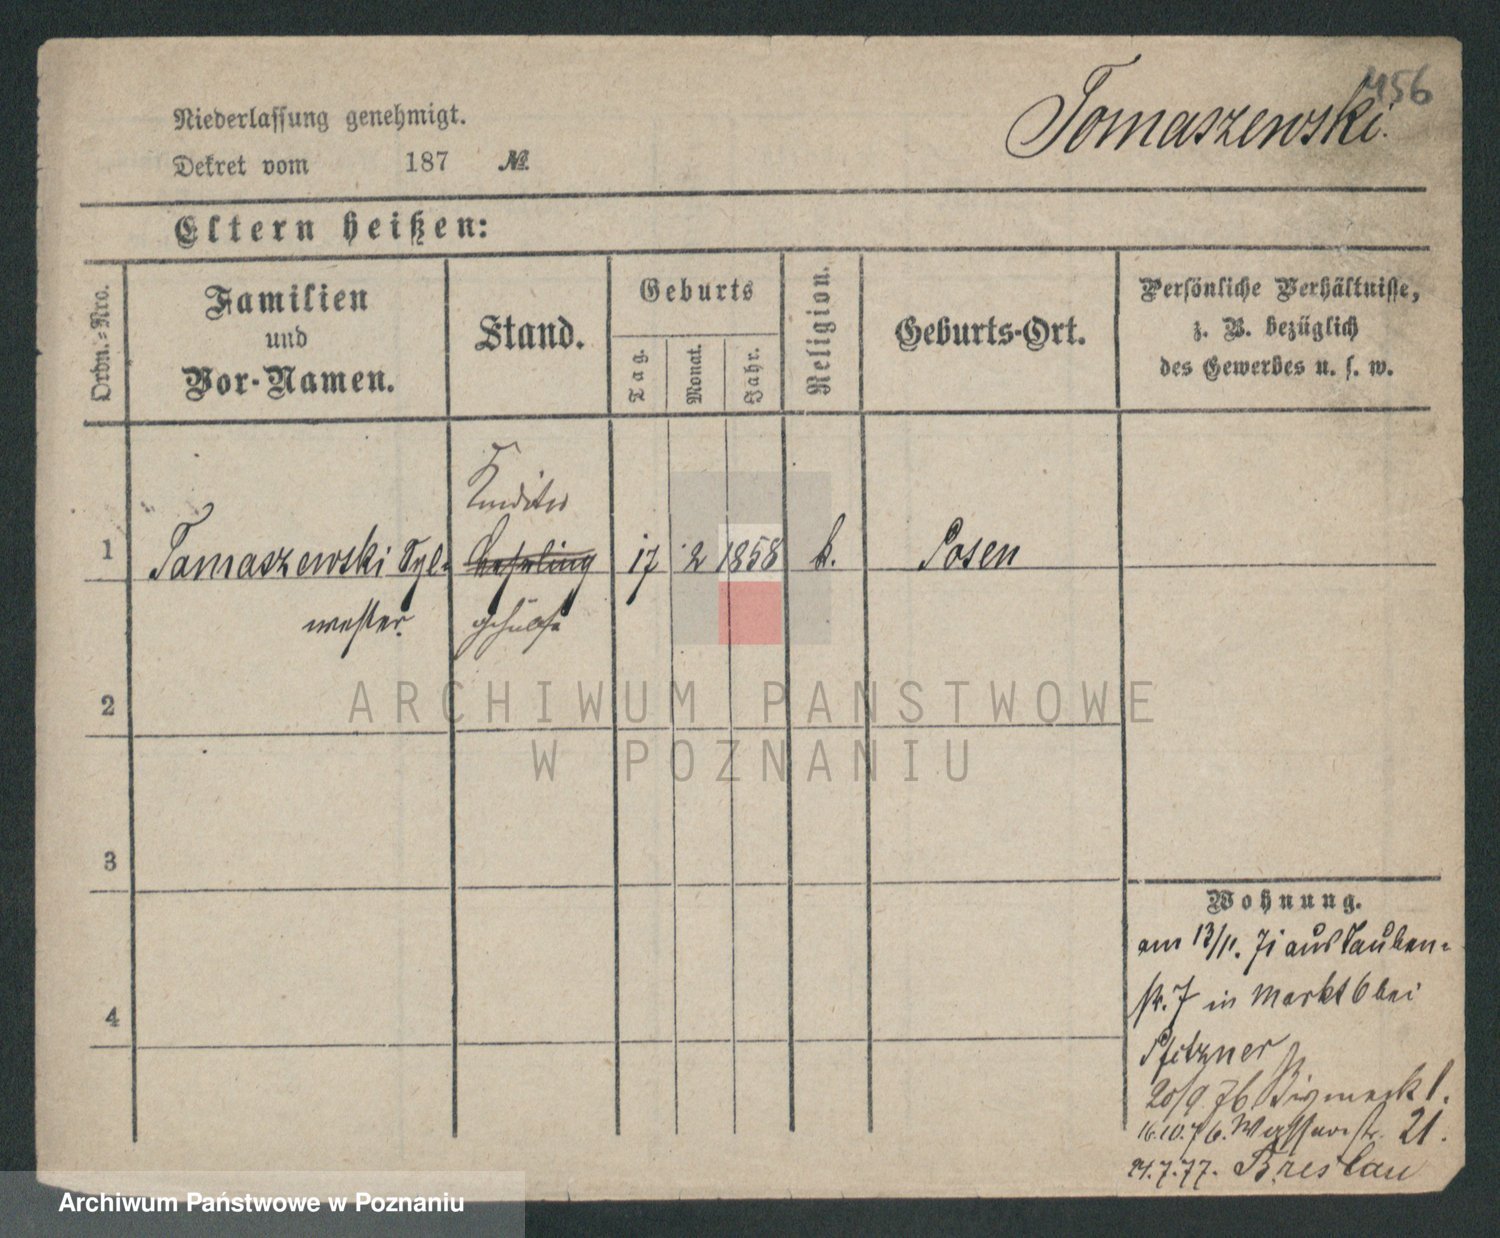 456
Tomaszewski.
Niederlassung genehmigt.
Dekret vom 187 №
Eltern heißen:
Ordn.-Nro.
Familien
und
Vor-Namen.
Stand.
Geburts
Tag.
Monat.
Jahr.
Religion.
Geburts-Ort.
Persönliche Verhältnisse,
z. B. bezüglich
des Gewerbes u. s. w.
Konditor
1 Tomaszewski Syl- 17 2 1858 k. Posen
wester. gehülfe
2
3
4
Wohnung.
am 13/11. 71 aus Tauben-
str. 7 in Markt 6 bei
Pfitzner
20/9 76 Bismarck 1.
16.10.76. Wasserstr. 21.
24.7.77. Breslau
ARCHIWUM PAŃSTWOWE
W POZNANIU
Archiwum Państwowe w Poznaniu